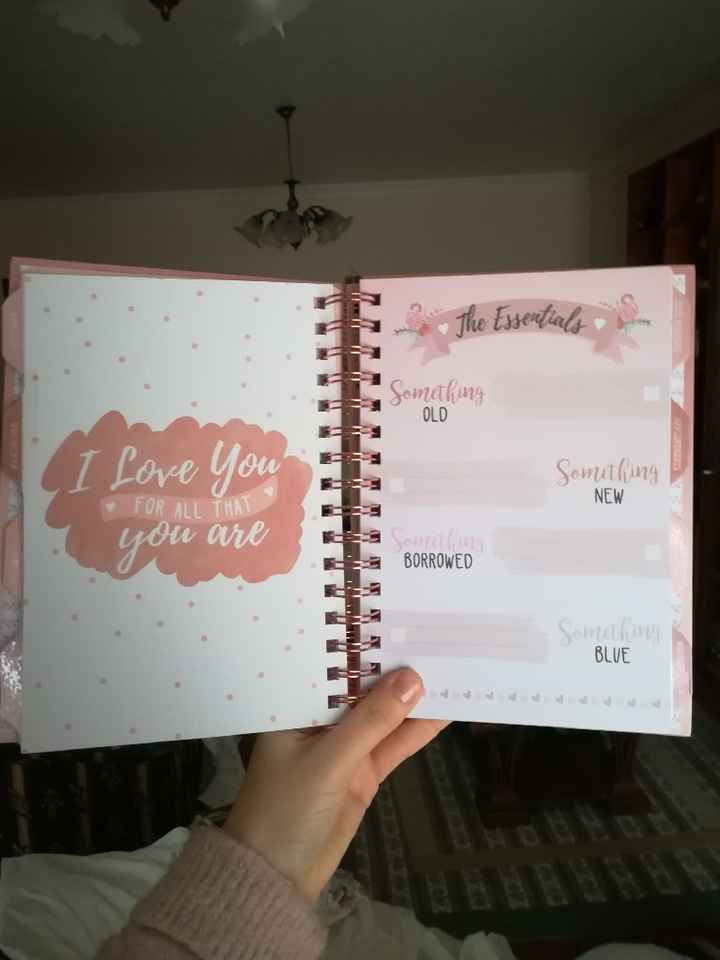 I Love You
FOR ALL THAT
you are
The Essentials
Something
OLD
Something
NEW
Something
BORROWED
Something
BLUE